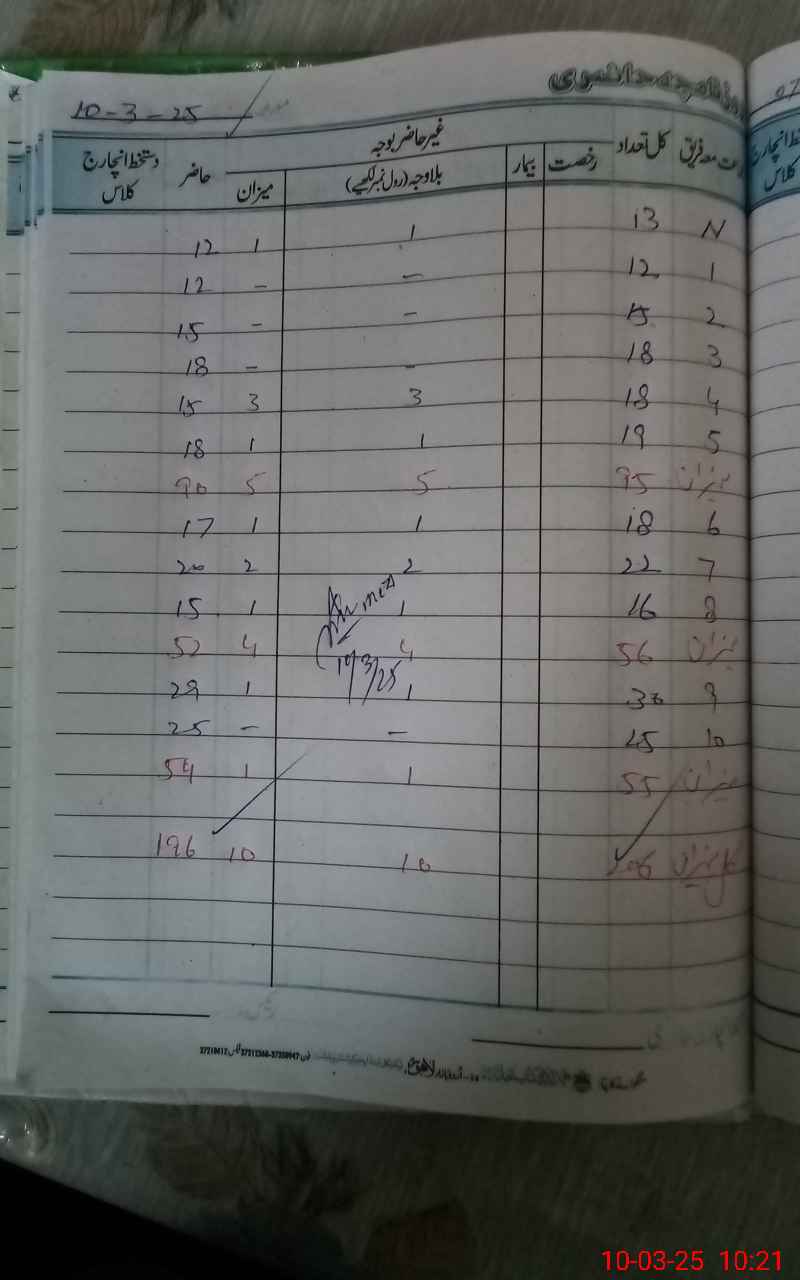 روزنامچہ حاضری
10-3-25
جماعت معہ فریق کل تعداد رخصت بیمار غیر حاضر بوجہ حاضر دستخط انچارج کلاس
بلاوجہ (رول نمبر لکھیے) میزان
N 13 1 1 12
1 12 - - 12
2 15 - - 15
3 18 - - 18
4 18 3 3 15
5 19 1 1 18
میزان 95 5 5 90
6 18 1 1 17
7 22 2 2 20
8 16 1 1 15
میزان 56 4 4 52
10/3/25
9 30 1 1 29
10 25 - - 25
میزان 55 1 1 54
کل میزان 206 10 10 196
10-03-25 10:21